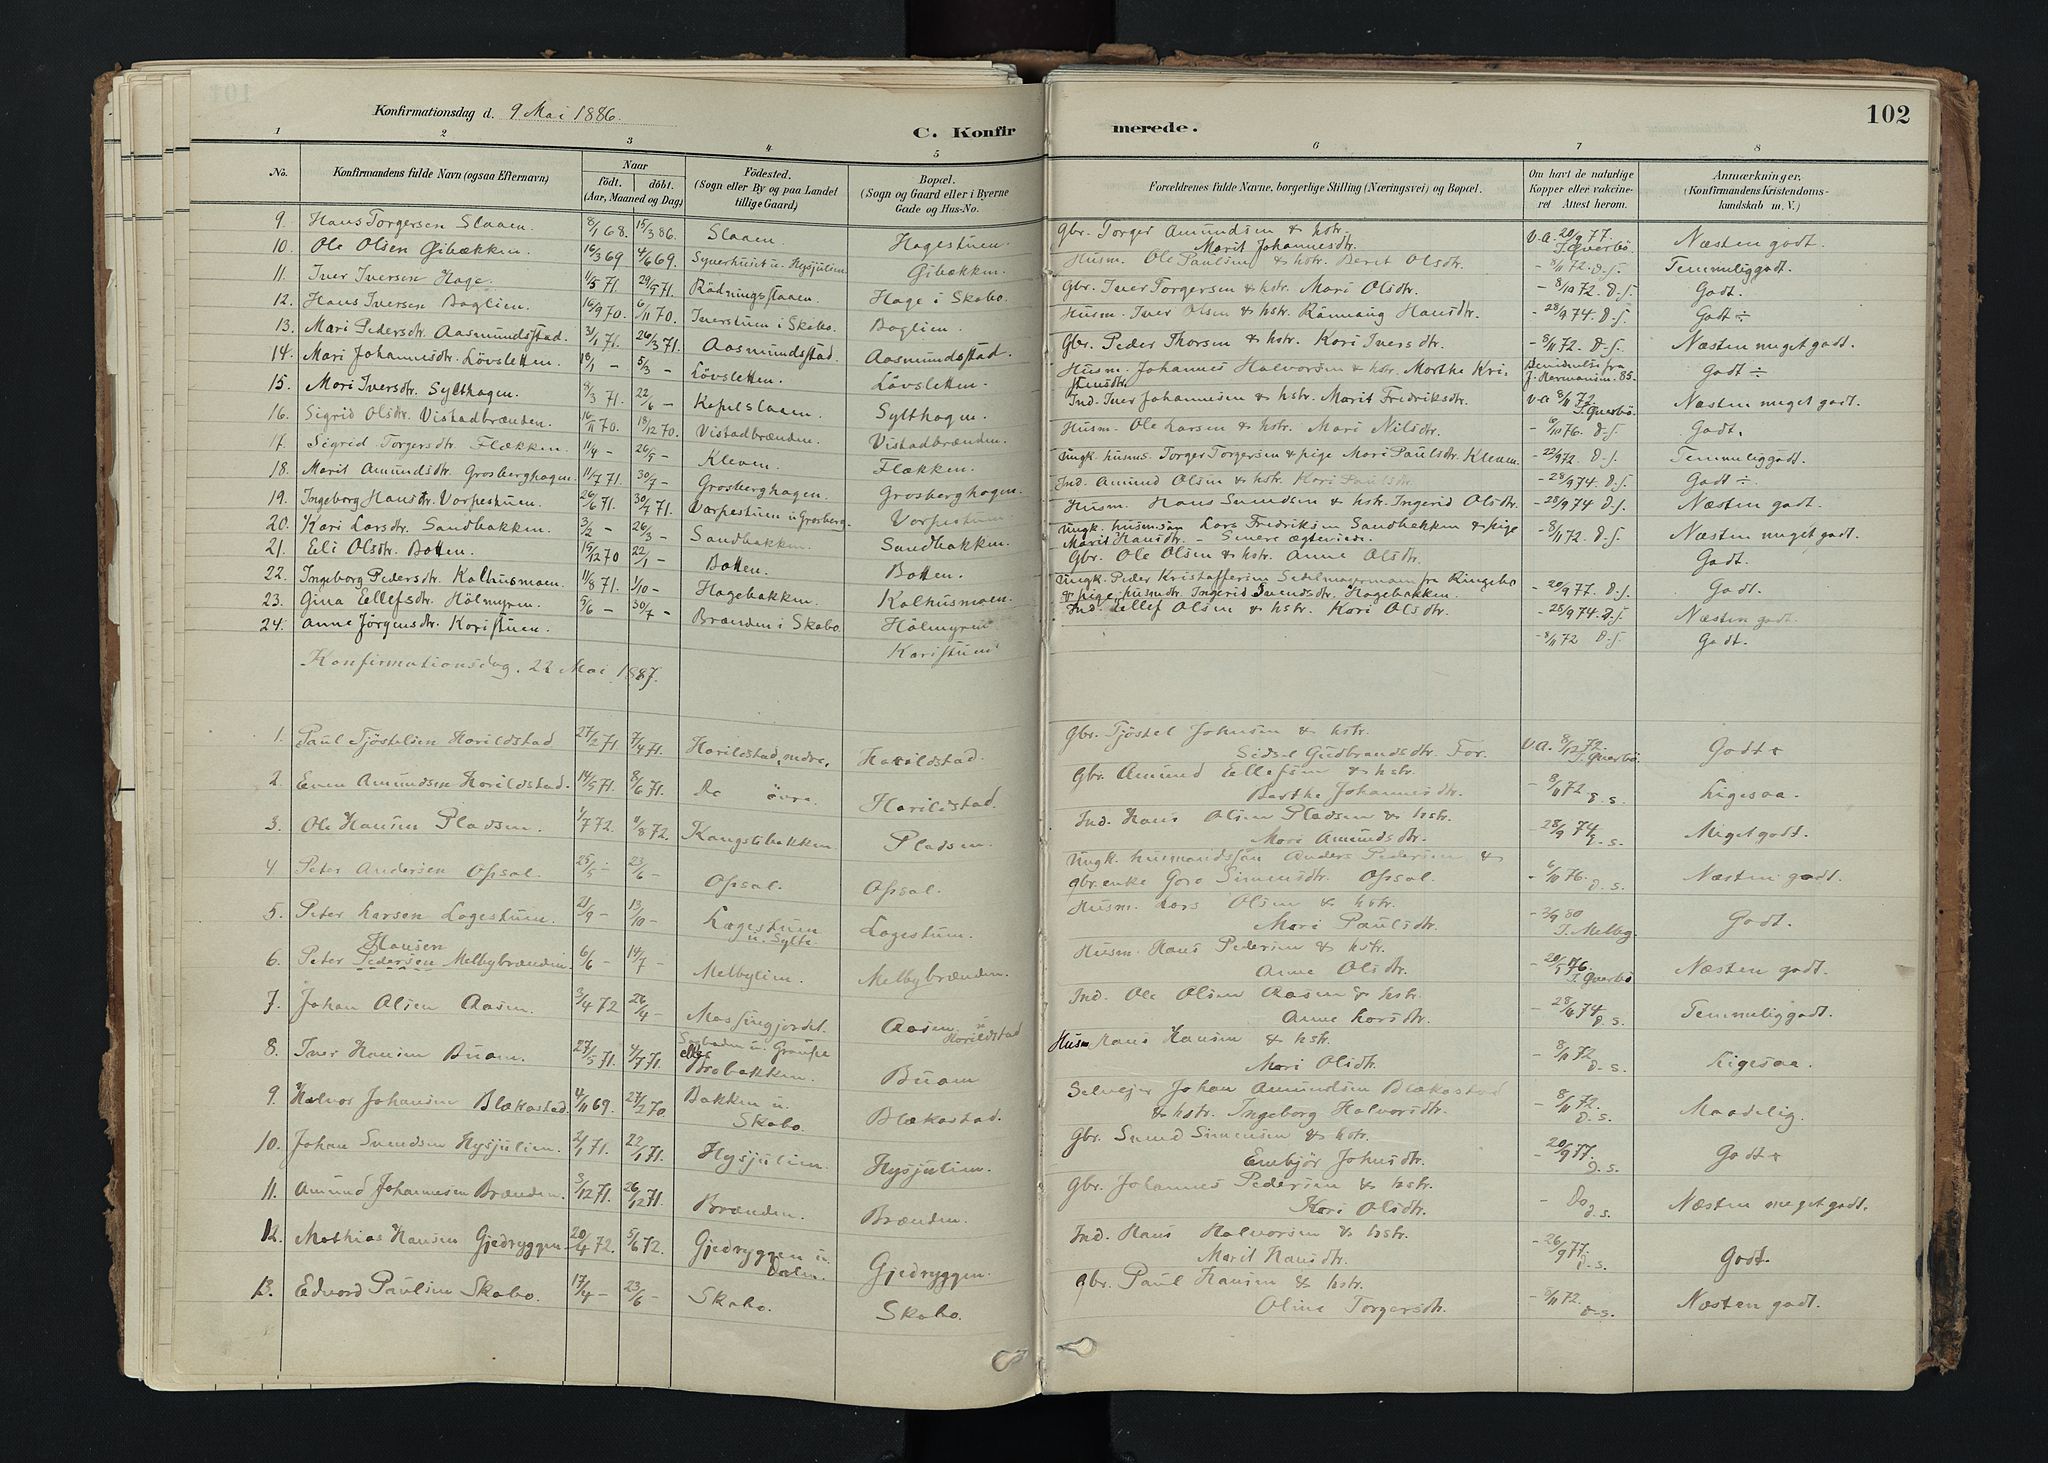 Konfirmationsdag d. 9 Mai 1886.
C. Konfirmerede.
102
1 2 3 4 5 6 7 8
No. Konfirmandens fulde Navn (ogsaa Efternavn) Naar födt. döbt. (Aar, Maaned og Dag) Födested. (Sogn eller By og paa Landet tillige Gaard) Bopæl. (Sogn og Gaard eller i Byerne Gade og Hus-No. Forældrenes fulde Navne, borgerlige Stilling (Næringsvei) og Bopæl. Om havt de naturlige Kopper eller vaccineret. Attest herom. Anmærkninger. (Konfirmandens Kristendomskundskab m. V.)
9. Hans Torgersen Slaaen. 8/1 68. 15/3 86. Slaaen. Hagestuen. Gbr. Torger Amundsen & hstr. Marit Johannesdtr. v.a. 20/9 77. T. Qverbö Næsten godt.
10. Ole Olsen Gibækken. 16/3 69 4/6 69. Gibækken. Husm. Ole Paulsen & hstr. Berit Olsdtr. - 8/11 72. d.s. Temmelig godt.
11. Iver Iversen Hage. 4/5 71. 29/9 71. Rödningsslaaen. Hage i Skabo. Gbr. Iver Torgersen & hstr. Mari Olsdtr. - 8/10 72. d.s. Godt.
12. Hans Iversen Baglien. 16/9 70. 6/11 70. Iverstuen i Skabo. Baglien. Husm. Iver Olsen & hstr. Rönnaug Hansdtr. - 28/9 74. d.s. Godt ÷
13. Mari Pedersdtr. Aasmundsstad. 31/1 71. 26/3 71. Aasmundsstad. Aasmundsstad. Gbr. Peder Thorsen & hstr. Kari Iversdtr. - 8/11 72. d.s. Næsten meget godt.
14. Mari Johannesdtr. Lövsletten. 18/1 - 5/3 - Lövsletten. Lövsletten. Husm. Johannes Halvorsen & hstr. Marthe Kristensdtr. fra J. Hermansen. 85. Godt ÷
15. Mari Iversdtr. Sylthagen. 8/3 71. 22/6 - Kapelslaaen. Sylthagen. Ind. Iver Johannesen & hstr. Marit Fredriksdtr. v.a 8/11 72 T. Qverbö. Næsten meget godt.
16. Sigrid Olsdtr. Vistadbrænden. 16/11 70. 18/12 70. Vistadbrænden. Vistadbrænden. Husm. Ole Larsen & hstr. Mari Nilsdtr. - 6/10 76. d.s. Godt.
17. Sigrid Torgersdtr. Flækken. 11/4 - 26/9 - Kleven. Flækken. Ungk. husms. Torger Torgersen & pige Mari Paulsdtr. Kleven. - 22/9 72. d.s. Temmelig godt.
18. Marit Amundsdtr. Grosberghagen. 11/7 71. 30/7 - Grosberghagen. Grosberghagen. Ind. Amund Olsen & hstr. Kari Paulsdtr. - 28/9 74. d.s. Godt ÷.
19. Ingeborg Hansdtr. Vorpestuen. 26/6 71. 30/7 71. Vorpestuen u Grosberg. Vorpestuen Husm. Hans Svendsen & hstr. Ingerid Olsdtr. - 28/9 74 d.s. Næsten godt.
20. Kari Larsdtr. Sandbakken. 3/2 - 26/3 - Sandbakken. Sandbakken. Ungk. husm.sön Lars Fredriksen Sandbakken & pige Marit Hansdtr. - Senere ægteviede. - 8/11 72. d.s. Næsten meget godt.
21. Eli Olsdtr. Botten. 15/12 70 22/1 - Botten. Botten. Gbr. Ole Olsen & hstr. Anne Olsdtr. Godt.
22. Ingeborg Pedersdtr. Kalhusmoen. 11/8 71. 1/10 - Hagebakken. Kalhusmoen. Ungk. Peder Kristaffersen Sadelmagermoen fra Ringebo & pige, husmdtr. Ingerid Svendsdtr. Hagebakken. - 20/9 77. d.s. Godt.
23. Gina Ellefsdtr. Hölmyren. 5/6 - 30/7 - Brænden i Skabo. Hölmyren Ind. Ellef Olsen & hstr. Kari Olsdtr. - 28/9 74. d.s. Næsten godt.
24. Anne Jörgensdtr. Karistuen. Karistuen - 8/11 72 d.s. Godt.
Konfirmationsdag. 22 Mai 1887.
1. Paul Tjöstelsen Harildstad 27/2 71. 7/4 71. Harildstad, nedre, Harildstad. Gbr. Tjöstel Johnsen & hstr. Sidsel Gudbrandsdtr. For. v.a. 8/12 72. T. Qverbö. Godt +
2. Even Amundsen Harildstad. 14/5 71. 8/6 71. Do övre. Harildstad. Gbr. Amund Ellefsen & hstr. Barthe Johannesdtr. - 8/11 72. d.s. Ligesaa.
3. Ole Hansen Pladsen. 1/7 72. 11/8 72. Kangslibakken. Pladsen. Ind. Hans Olsen Pladsen & hstr. Mari Amundsdtr. - 28/9 74. d.s. Meget godt.
4 Peter Andersen Opsal. 25/5 - 23/6 - Opsal. Opsal. Ungk. husmandssön Anders Pedersen & gbr.enke Goro Simensdtr. Opsal. - 6/10 76. d.s. Næsten godt.
5. Peter Larsen Lagestuen. 21/9 - 13/10 - Lagestuen u. Sylte. Lagestuen. Husm. Lars Olsen & hstr. Mari Paulsdtr. - 3/9 80 T. Melby. Godt.
6. Peter Hansen Pedersen Melbybrænden. 6/6 - 14/7 - Melbylien. Melbybrænden. Husm. Hans Pedersen & hstr. Anne Olsdtr. - 20/5 76. T. Qverbö Næsten godt.
7. Johan Olsen Aasen. 3/4 72 26/4 - Massingjordet. Aasen u Harildstad Ind. Ole Olsen Aasen & hstr. Anne Larsdtr. - 28/6 74. d.s. Temmelig godt.
8. Iver Hansen Buam. 27/5 71. 4/7 71. u. Graupe eller Brobakken. Buam Husm Hans Hansen & hstr. Mari Olsdtr. - 8/11 72. d.s. Ligesaa.
9. Halvor Johansen Blækastad. 4/11 69. 27/2 70. Bakken u. Skabo. Blækastad. Selvejer Johan Amundsen Blækastad & hstr. Ingeborg Halvorsdtr. - 8/11 72. d.s. Maadelig.
10. Johan Svendsen Hysjulien. 2/1 71. 22/1 71. Hysjulien. Hysjulien. Gbr. Svend Simensen & hstr. Embjör Johnsdtr. - 20/9 77. d.s. Godt +
11. Amund Johannesen Brænden. 3/12 71. 26/12 71. Brænden. Brænden. Gbr. Johannes Pedersen & hstr. Kari Olsdtr. - Do d.s. Næsten meget godt.
12. Mathias Hansen Gjedryggen 20/4 72. 5/6 72. Gjedryggen u. Dalen. Gjedryggen. Ind. Hans Halvorsen & hstr. Marit Hansdtr. - 26/9 77. d.s. Godt.
13. Edvard Paulsen Skabo. 17/4 - 23/6 - Skabo. Skabo. Gbr. Paul Hansen & hstr. Oline Torgersdtr. - 8/11 72. d.s. Næsten godt.